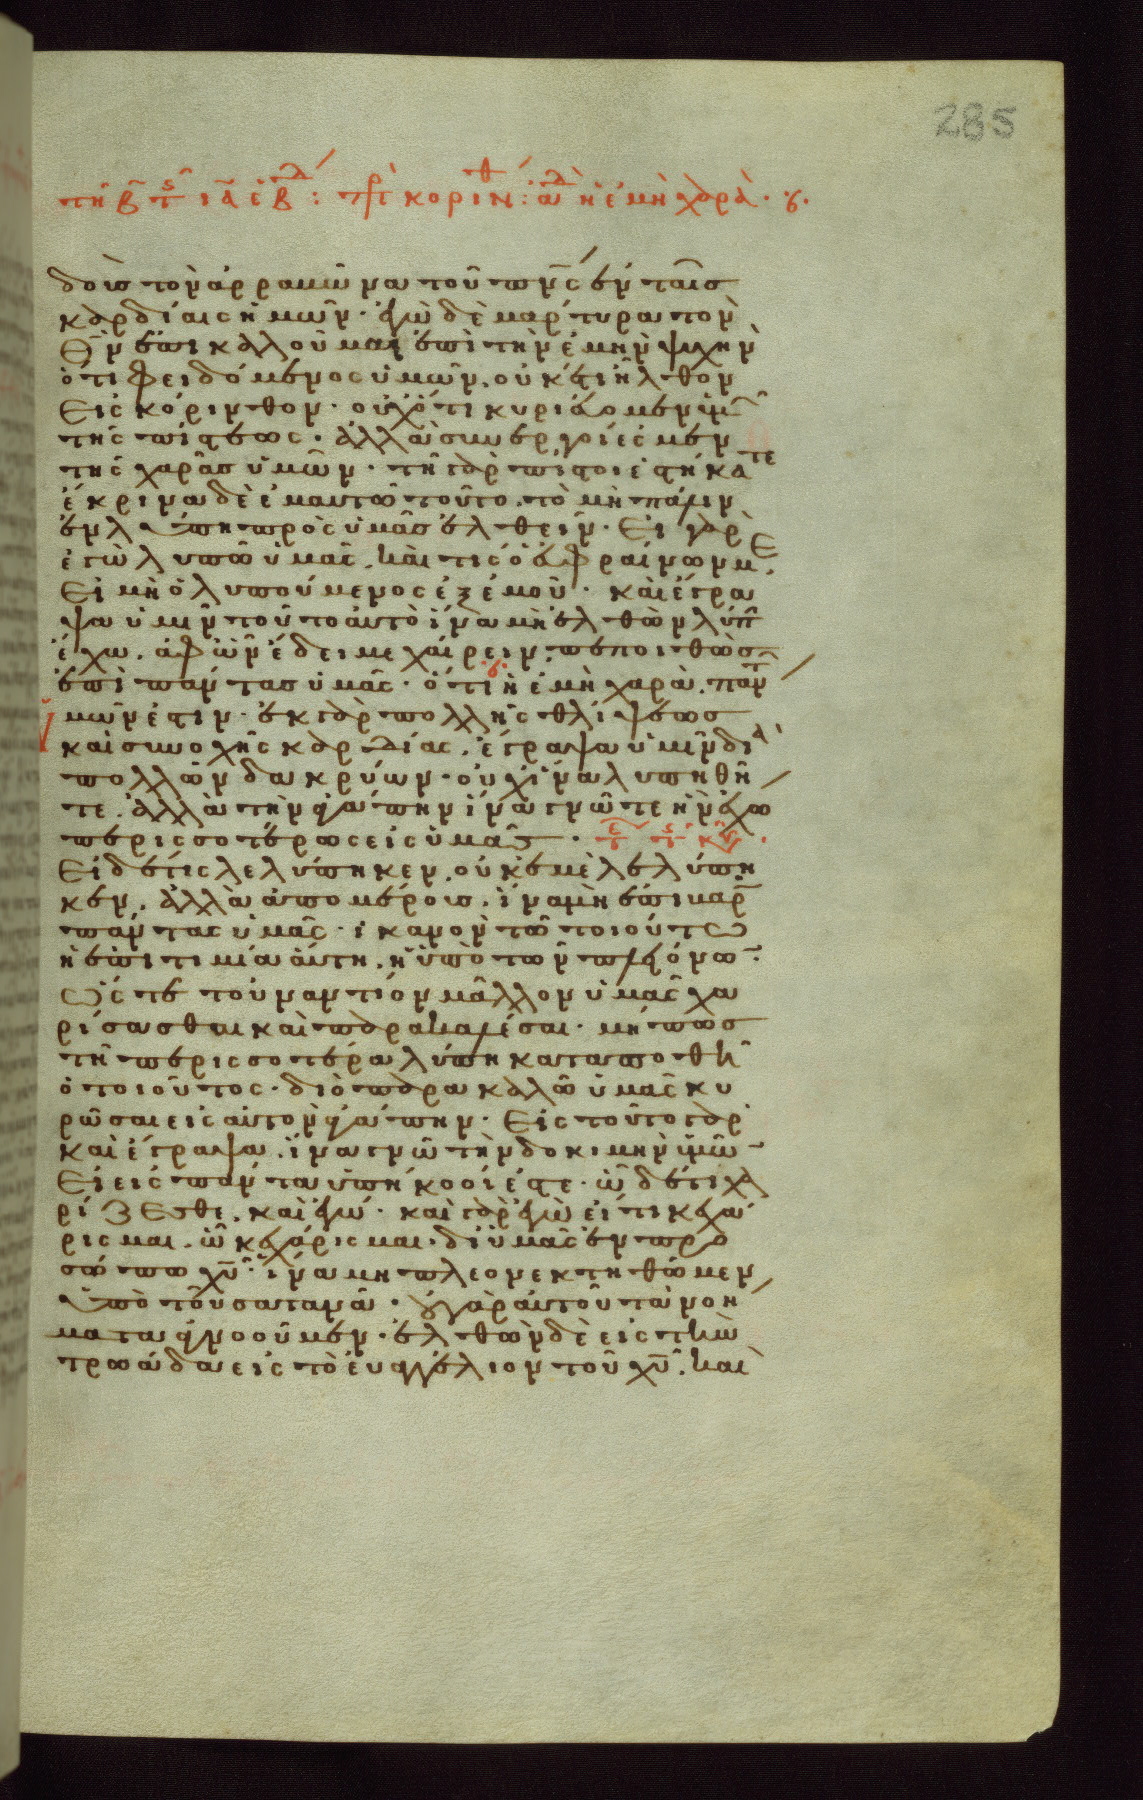 285
τῇ β τ ιδ ἑβδ : πρ κορινθ : ἀδ ἡ ἐμὴ χαρὰ ·
δοὺς τὸν ἀρραβῶνα τοῦ πνς ἐν ταῖς
καρδίαις ἡμῶν · ἐγὼ δὲ μάρτυρα τὸν
θν ἐπικαλοῦμαι ἐπὶ τὴν ἐμὴν ψυχὴν
ὅτι φειδόμενος ὑμῶν . οὐκέτι ἦλθον
εἰς κόρινθον · οὐχ ὅτι κυριεύομεν ὑμῶ
τῆς πίστεως · ἀλλὰ συνεργοί ἐσμεν
τῆς χαρᾶς ὑμῶν · τῇ γὰρ πίστει ἑστήκατε
ἔκρινα δὲ ἐμαυτῶ τοῦτο . τὸ μὴ πάλιν
ἐν λύπη πρὸς ὑμᾶς ἐλθεῖν · εἰ γὰρ
ἐγὼ λυπῶ ὑμᾶς . καὶ τίς ὁ εὐφραίνων με .
εἰ μὴ ὁ λυπούμενος ἐξ ἐμοῦ · καὶ ἔγρα
ψα ὑμῖν τοῦτο αὐτὸ ἵνα μὴ ἐλθὼν λύπ
ἔχω . ἀφ ὧν ἔδει με χαίρειν . πεποιθὼς
ἐπὶ πάντας ὑμᾶς · ὅτι ἡ ἐμὴ χαρὰ . πάντ
ὑμῶν ἐστιν · ἐκ γὰρ πολλῆς θλίψεως
καὶ συνοχῆς καρδίας . ἔγραψα ὑμῖν διὰ
πολλῶν δακρύων · οὐχ ἵνα λυπηθῆ
τε . ἀλλὰ τὴν ἀγάπην ἵνα γνῶτε ἣν ἔχω
περισσοτέρως εἰς ὑμᾶς ·
εἰ δέ τις λελύπηκεν . οὐκ ἐμὲ λελύπη
κεν . ἀλλὰ ἀπὸ μέρους . ἵνα μὴ ἐπιβαρ
πάντας ὑμᾶς · ἱκανὸν τῶ τοιούτω
ἡ ἐπιτιμία αὕτη . ἡ ὑπὸ τῶν πλειόνω
ὥστε τοὐναντίον μᾶλλον ὑμᾶς χα
ρίσασθαι καὶ παρακαλέσαι · μήπως
τῇ περισσοτέρα λύπη καταποθῆ
ὁ τοιοῦτος · διὸ παρακαλῶ ὑμᾶς κυ
ρῶσαι εἰς αὐτὸν ἀγάπην · εἰς τοῦτο γὰρ
καὶ ἔγραψα . ἵνα γνῶ τὴν δοκιμὴν ὑμῶ
εἰ εἰς πάντα ὑπήκοοί ἐστε · ὧ δέ τι χα
ρίζεσθε . καὶ ἐγώ · καὶ γὰρ ἐγὼ εἴ τι κεχά
ρισμαι . ὧ κεχάρισμαι . δι ὑμᾶς ἐν προ
σώπω χυ · ἵνα μὴ πλεονεκτηθῶμεν
ὑπὸ τοῦ σατανᾶ · οὐ γὰρ αὐτοῦ τὰ νοή
ματα ἀγνοοῦμεν · ἐλθὼν δὲ εἰς τὴν
τρωάδα εἰς τὸ εὐαγγέλιον τοῦ χυ . καὶ